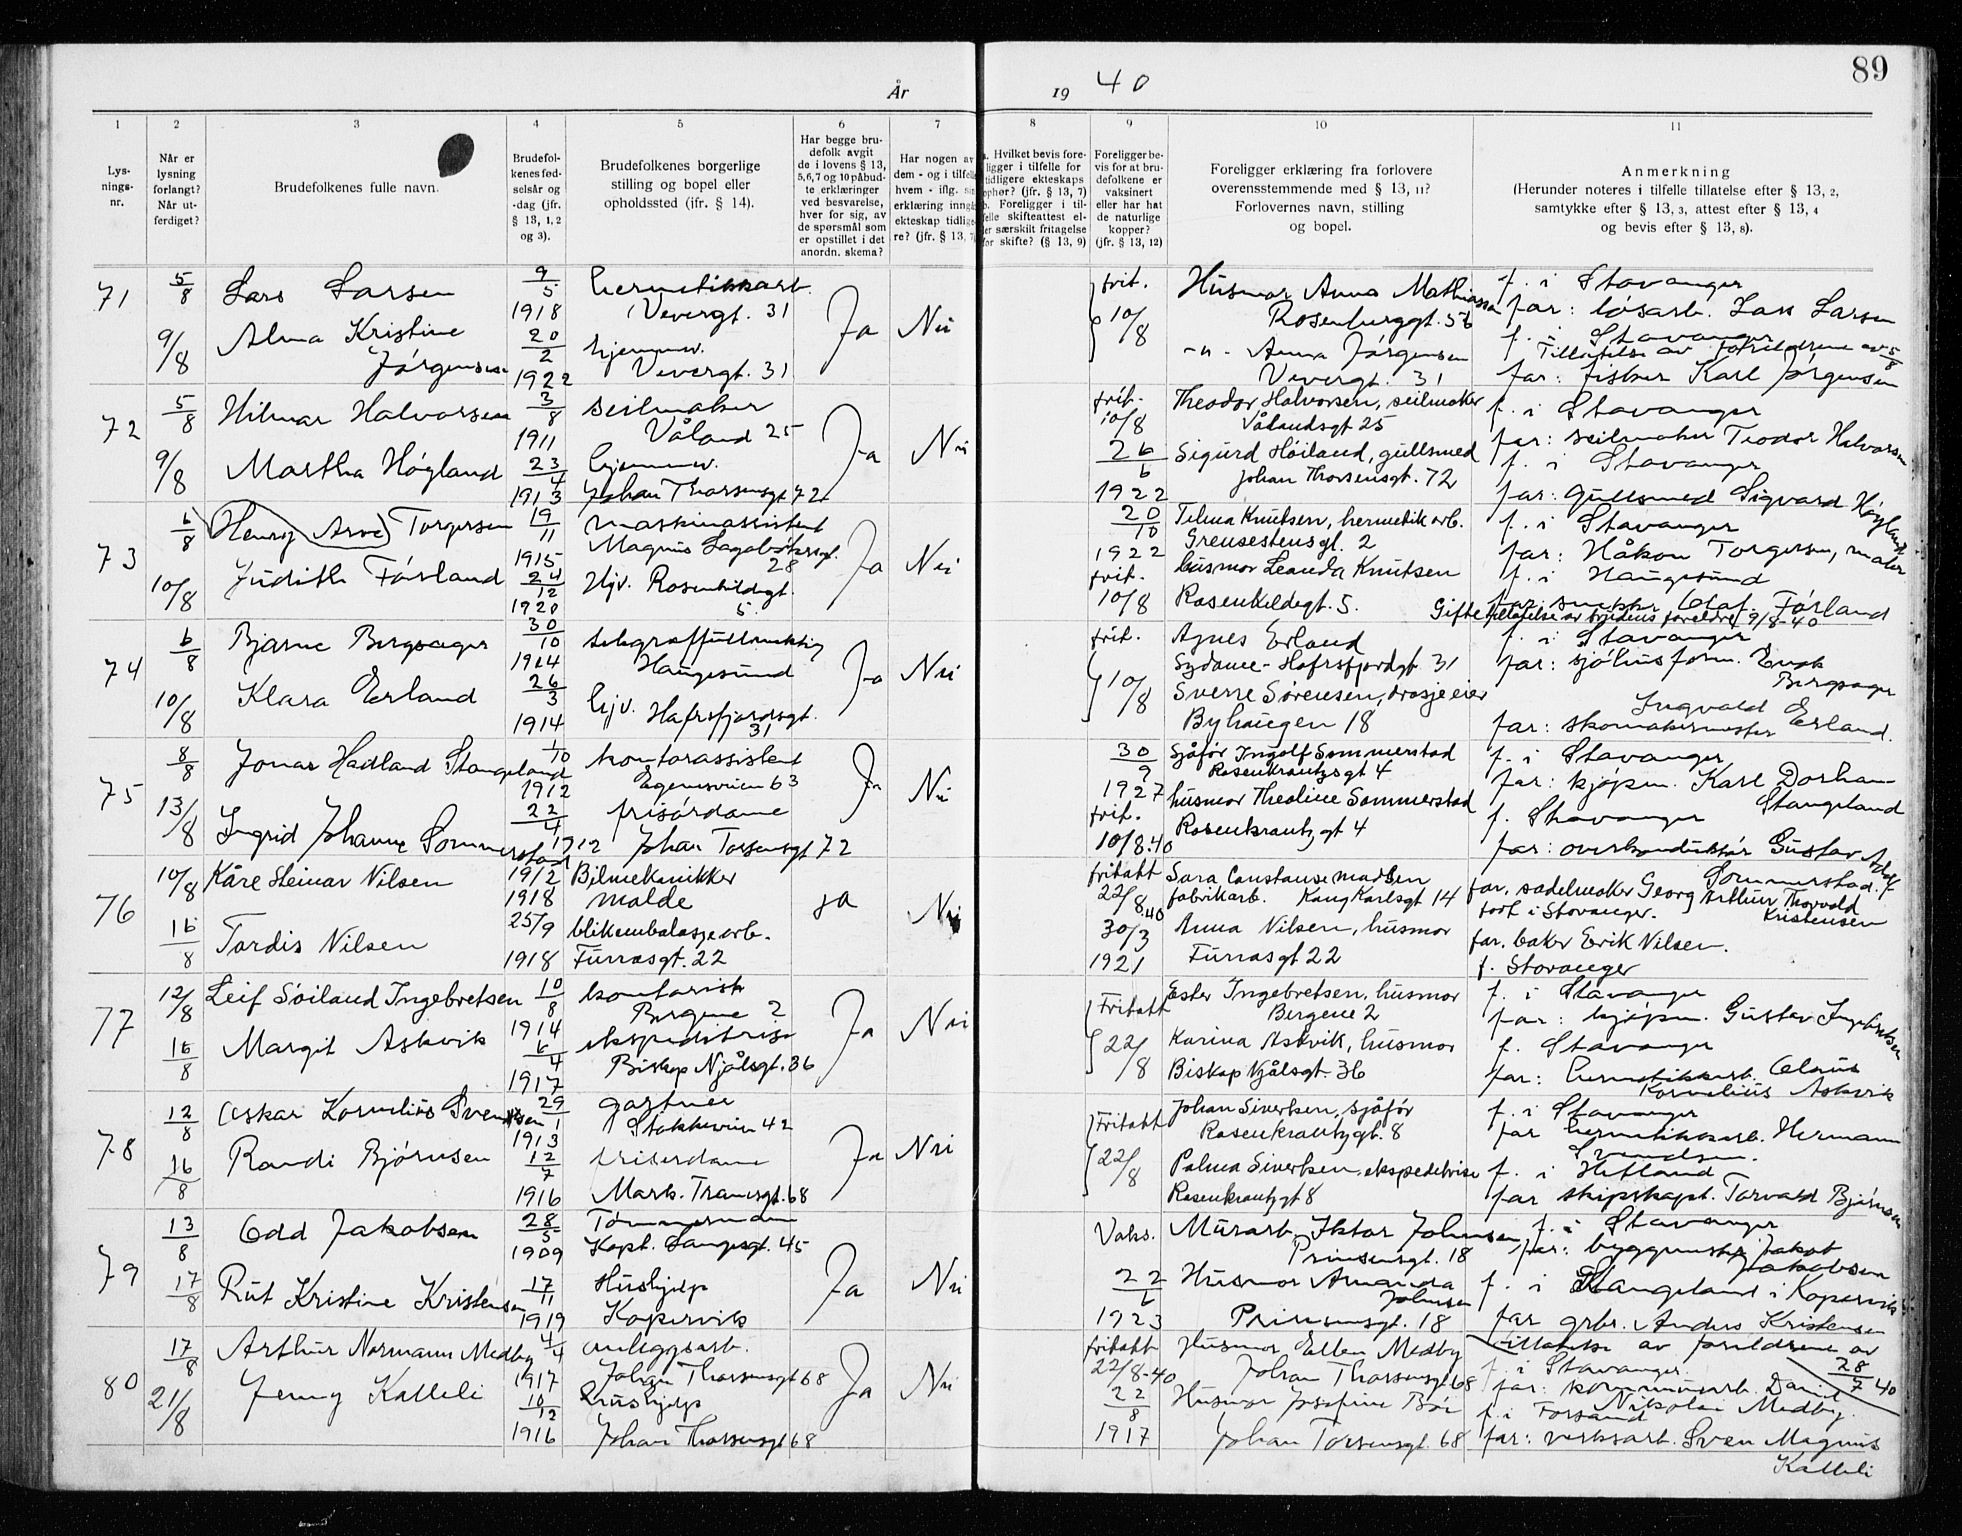 89
År 19 40
1 2 3 4 5 6 7 8 9 10 11
Lys-
nings-
nr.
Når er
lysning
forlangt?
Når ut-
ferdiget?
Brudefolkenes fulle navn.
Brudefol-
kenes fød-
selsår og
-dag (jfr.
§ 13, 1, 2
og 3).
Brudefolkenes borgerlige
stilling og bopel eller
opholdssted (jfr. § 14).
Har begge bru-
defolk avgit
de i lovens § 13,
5,6,7 og 10 påbud-
te erklæringer
ved besvarelse,
hver for sig, av
de spørsmål som
er opstillet i det
anordn. skema?
Har nogen av
dem - og i tilfelle
hvem - iflg. sin
erklæring inngå
ekteskap tidlige-
re? (jfr. § 13, 7)
a. Hvilket bevis fore-
ligger i tilfelle for
tidligere ekteskaps
ophør? (jfr. § 13, 7)
b. Foreligger i til-
felle skifteattest el-
ler særskilt fritagelse
for skifte? (§ 13, 9)
Foreligger be-
vis for at bru-
defolkene er
vaksinert
eller har hat
de naturlige
kopper?
(jfr. § 13, 12)
Foreligger erklæring fra forlovere
overensstemmende med § 13, 11?
Forlovernes navn, stilling
og bopel.
Anmerkning
(Herunder noteres i tilfelle tillatelse efter § 13, 2,
samtykke efter § 13, 3, attest efter § 13, 4
og bevis efter § 13, 8).
71
5/8
9/8
Lars Larsen
Alma Kristine
Jørgensen
9/5
1918
20/2
1922
hermetikkarb.
Vevergt. 31
hjemmev.
Vevergt. 31
Ja
Nei
frit.
10/8
Husmor Anna Mathiassen
Rosenberggt. 56
-"- Anna Jørgensen
Vevergt. 31
f. i Stavanger
far: løsarb. Lars Larsen
f. i Stavanger
Tillatelse av foreldrene av 5/8
far: fisker Karl Jørgensen
72
5/8
9/8
Hilmar Halvorsen
Martha Høyland
3/8
1911
23/4
1913
seilmaker
Våland 25
hjemmev.
Johan Thorsensgt 72
Ja
Nei
frit.
10/8
26/6
1922
Theodor Halvorsen, seilmaker
Vålandsgt 25
Sigurd Høiland, gullsmed
Johan Thorsensgt. 72
f. i Stavanger
far: seilmaker Teodor Halvorsen
f. i Stavanger
far: gullsmed Sigvard Høyland
73
6/8
10/8
Henry Arve Torgersen
Judith Førland
19/11
1915
24/12
1920
maskinassistent
Magnus Lagabøtersgt.
28
Hjv. Rosenkildegt.
5.
Ja
Nei
20/10
1922
frit.
10/8
Telma Knutsen, hermetikarb.
Grensestensgt. 2
husmor Leanda Knutsen
Rosenkeldegt. 5.
f. i Stavanger
far: Håkon Torgersen, maler
f. i Haugesund
far: snekker Olaf Førland
Giftetillatelse av brudens foreldre 9/8-40
74
6/8
10/8
Bjarne Bergsager
Klara Erland
30/10
1914
26/3
1914
telegraffullmektig
Haugesund
hjv. Hafrsfjordsgt.
31
Ja
Nei
frit.
10/8
Agnes Erland
Sydame - Hafrsfjordgt. 31
Sverre Sørensen, drosjeeier
Byhaugen 18
f. i Stavanger
far: sjøhusform. Enok
Bergsager
Ingvald
far: skomakermester Erland.
75
8/8
13/8
Jonas Hadland Stangeland
Ingrid Johanne Sommerstad
1/10
1912
22/4
1912
kontorassistent
Egenesveien 63
frisørdame
Johan Torsensgt 72
Ja
Nei
30/9
1927
frit.
10/8.40
Sjåfør Ingolf Sommerstad
Rosenkrantzgt 4
husmor Theoline Sommerstad
Rosenkrantzgt 4
f. i Stavanger
far: kjøpm. Karl Dorhan
Stangeland
f. Stavanger
far: overkonduktør Gustav Adolf
Sommerstad.
76
10/8
16/8
Kåre Steinar Nilsen
Tordis Nilsen
19/2
1918
25/9
1918
Bilmekanikker
Malde
blikembalasjearb.
Furrasgt. 22
Ja
Nei
fritatt
22/8.40
30/3
1921
Sara Constanse Madsen
fabrikarb. Kong Karlsgt 14
Anna Nilsen, husmor
Furrasgt 22
far, sadelmaker Georg Arthur Thorvald
Kristensen
født i Stavanger.
far. baker Erik Nilsen.
f. Stavanger
77
12/8
16/8
Leif Søiland Ingebretsen
Margit Askvik
10/8
1914
6/4
1917
kontorist
Bergene 2
ekspeditrise
Biskop Njålsgt. 36
Ja
Nei
Fritatt
22/8
Ester Ingebretsen, husmor
Bergene 2
Karina Askvik, husmor
Biskop Njålsgt. 36
f. i Stavanger
far: kjøpm. Gustav Ingebretsen
f. Stavanger
far: hermetikkarb. Claus
Kornelius Askvik
78
12/8
16/8
Oskar Kornelius Svendsen
Randi Bjørnsen
29/1
1913
12/7
1916
gartner
Stokkeveien 42
friserdame
Mark. Tranesgt. 68
Ja
Nei
Fritatt
22/8
Johan Sivertsen, sjåfør
Rosenkrantzgt. 8
Palma Sivertsen, ekspeditrise
Rosenkrantzgt 8
f. i Stavanger
far hermetikkarb. Hermann
Svendsen.
f. i Hetland
far skipskapt. Torvald Bjørnsen
79
13/8
17/8
Odd Jakobsen
Rut Kristine Kristensen
28/5
1909
17/11
1919
Tømmermann
Kapt. Langesgt. 45
Hushjelp
Kopervik
Ja
Nei
Vaks.
22/6
1923
Murarb. Johnsen
Prinsensgt. 18
Husmor Amanda
Johnsen
Prinsensgt. 18
f. i Stavanger
far: byggmester Jakob
Jakobsen
f. i Stangeland i Kopervik
far grbr. Anders Kristensen
80
17/8
21/8
Arthur Normann Medby
Jenny Kalleli
4/4
1917
10/12
1916
anleggsarb.
Johan Thorsensgt 68
Hushjelp
Johan Thorsensgt 68
Ja
Nei
fritatt
22/8-40
22/8
1917
Husmor Ellen Medby
Johan Thorsensgt 68
Husmor Josefine Bøe
Johan Torsensgt. 68
Tillatelse av foreldrene av
28/7 40
f. i Stavanger.
far: kommunearb. Daniel
Nikolai Medby.
f. i Forsand
far: verksarb. Sven Magnus
Kalleli